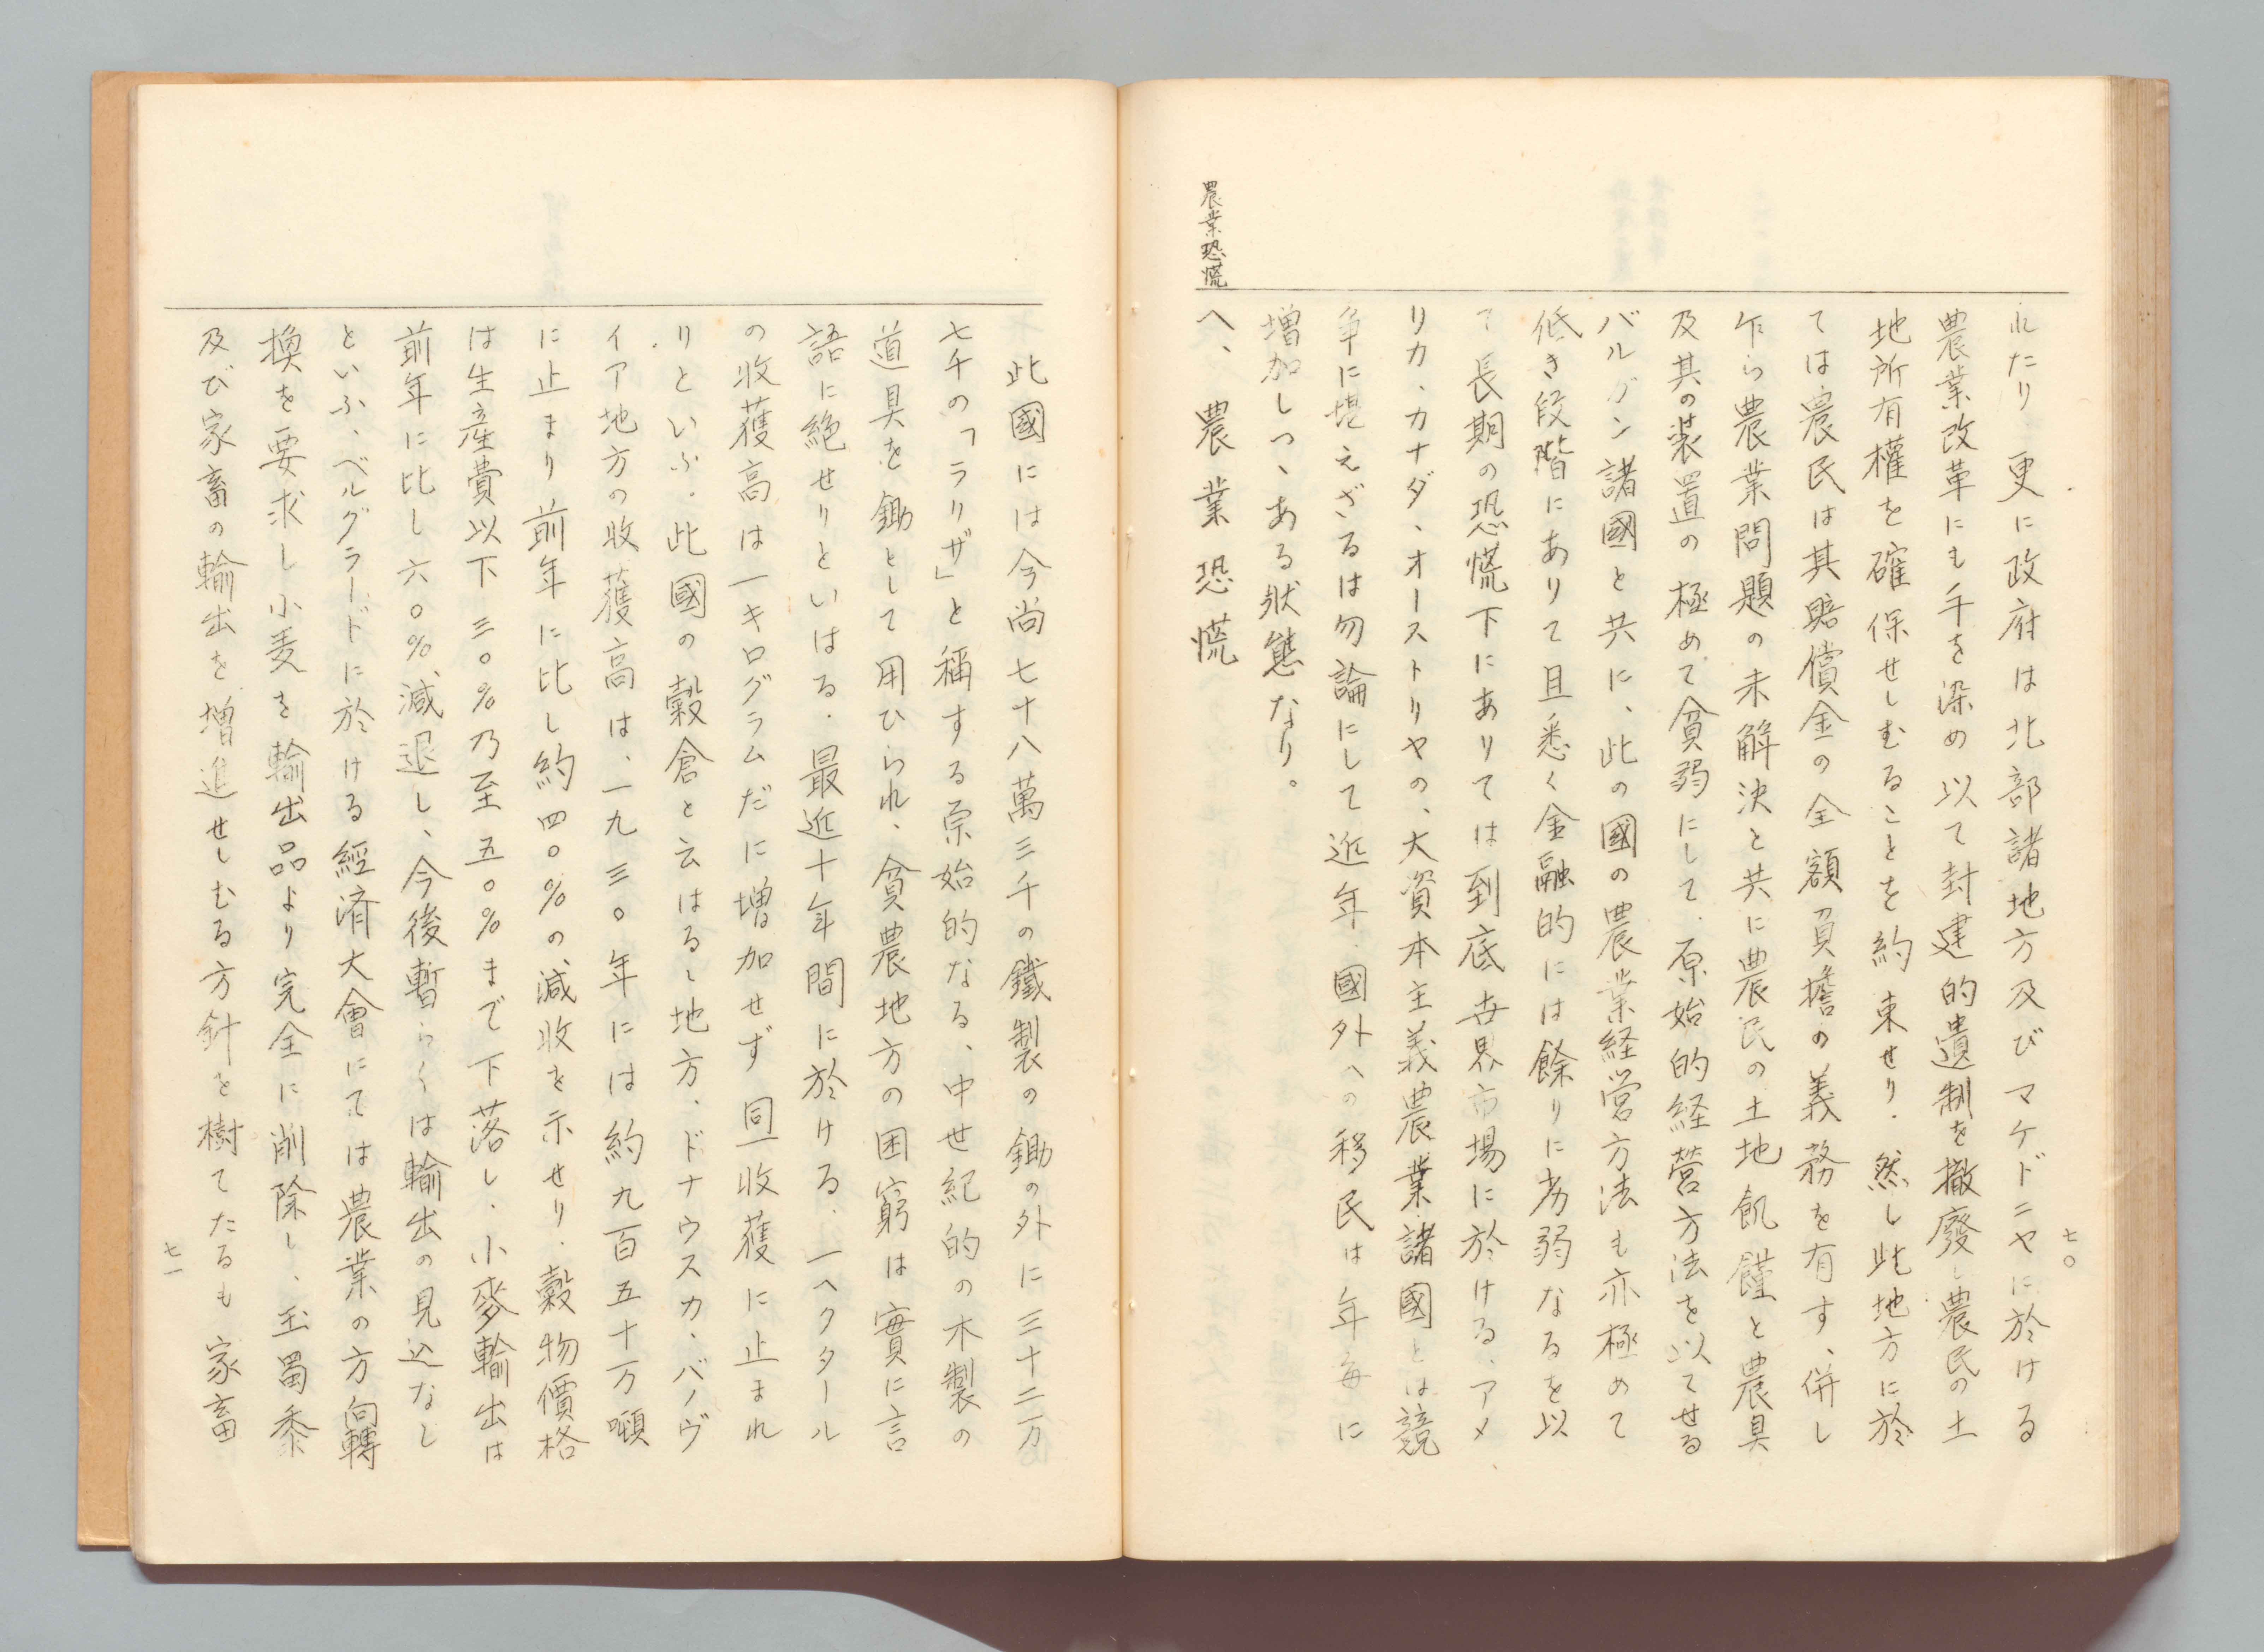 七〇
れたり 更に政府は北部諸地方及びマケドニヤに於ける
農業改革にも手を染め以て封建的遺制を撤廢し農民の土
地所有權を確保せしむることを約束せり. 然し此地方に於
ては農民は其賠償金の全額負擔の義務を有す、併し
乍ら農業問題の未解決と共に農民の土地飢饉と農具
及其の装置の極めて貧弱にして、原始的経營方法を以てせる
バルカン諸國と共に、此の國の農業経営方法も亦極めて
低き段階にありて且悉く金融的には餘りに劣弱なるを以
て長期の恐慌下にありては到底世界市場に於ける、アメ
リカ、カナダ、オーストリヤの、大資本主義農業諸國とは競
争に堪えざるは勿論にして近年、國外への移民は年毎に
増加しつゝある狀態なり。
農業恐慌
へ、農業恐慌
此國には今尚七十八萬三千の鐵製の鋤の外に三十二万
七千の「ラリザ」と稱する原始的なる、中世紀的の木製の
道具を鋤として用ひられ、貧農地方の困窮は實に言
語に絶せりといはる. 最近十年間に於ける. 一ヘクタール
の收獲高は一キログラムだに増加せず同一收獲に止まれ
りといふ. 此國の穀倉と云はるゝ地方、ドナウスカ、バノヴ
イア地方の收獲高は、一九三〇年には約九百五十万噸
に止まり前年に比し約四〇%の減收を示せり. 穀物價格
は生産費以下三〇%乃至五〇%まで下落し、小麥輸出は
前年に比し六〇%減退し、今後暫らくは輸出の見込なし
といふ、ベルグラードに於ける經濟大會にては農業の方向轉
換を要求し小麦を輸出品より完全に削除し、玉蜀黍
及び家畜の輸出を増進せしむる方針を樹てたるも家畜
七一